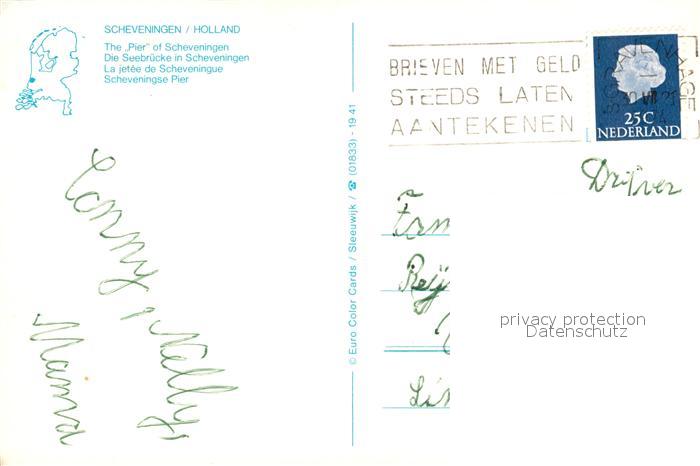 SCHEVENINGEN / HOLLAND
The „Pier" of Scheveningen
Die Seebrücke in Scheveningen
La jetée de Scheveningue
Scheveningse Pier
© Euro Color Cards / Sleeuwijk / ☎ (01833) - 19 41
BRIEVEN MET GELD
STEEDS LATEN
AANTEKENEN
25C
NEDERLAND
Conny,
Nelly,
Drijver
Fam
privacy protection
Datenschutz